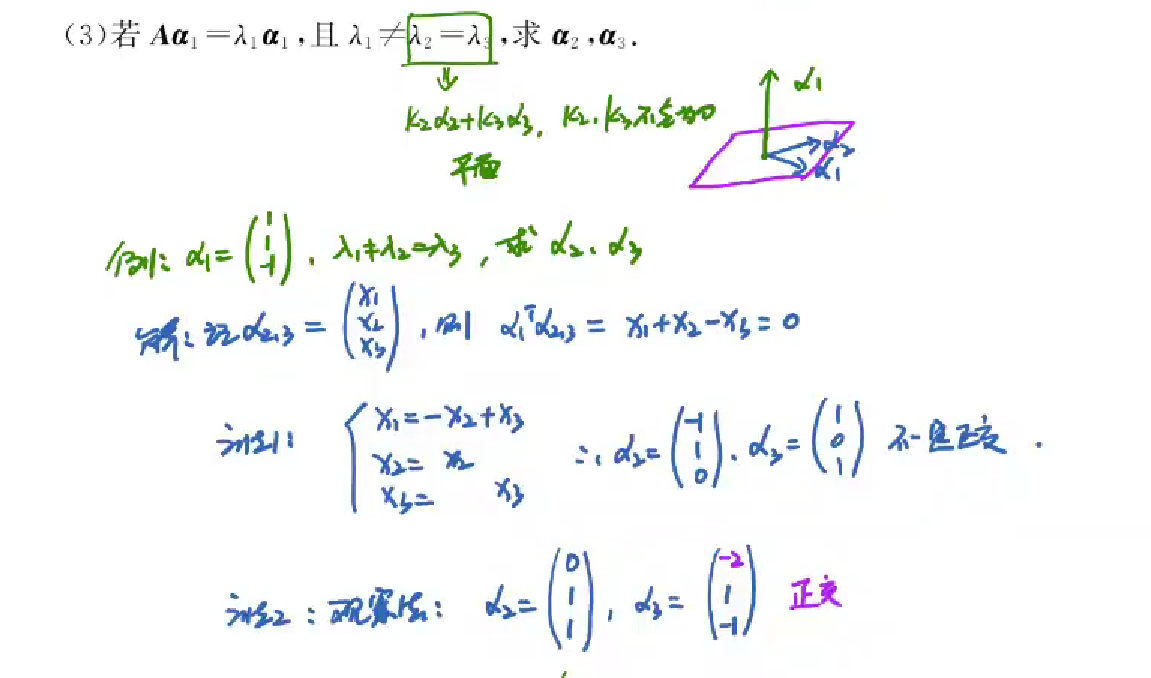 (3)若 Aα₁=λ₁α₁,且 λ₁≠λ₂=λ₃,求 α₂,α₃.
α₁
k₂α₂+k₃α₃, k₂.k₃不全为0
平面
α₂
α₁
例: α₁=(1 1 -1), λ₁≠λ₂=λ₃, 求 α₂、α₃
解: 记α₂,₃=(x₁ x₂ x₃), 则 α₁ᵀα₂,₃ = x₁+x₂-x₃=0
法1: { x₁=-x₂+x₃
x₂= x₂
x₃= x₃
∴ α₂=(-1 1 0)、α₃=(1 0 1) 不一定正交.
法2:观察法: α₂=(0 1 1), α₃=(-2 1 -1) 正交